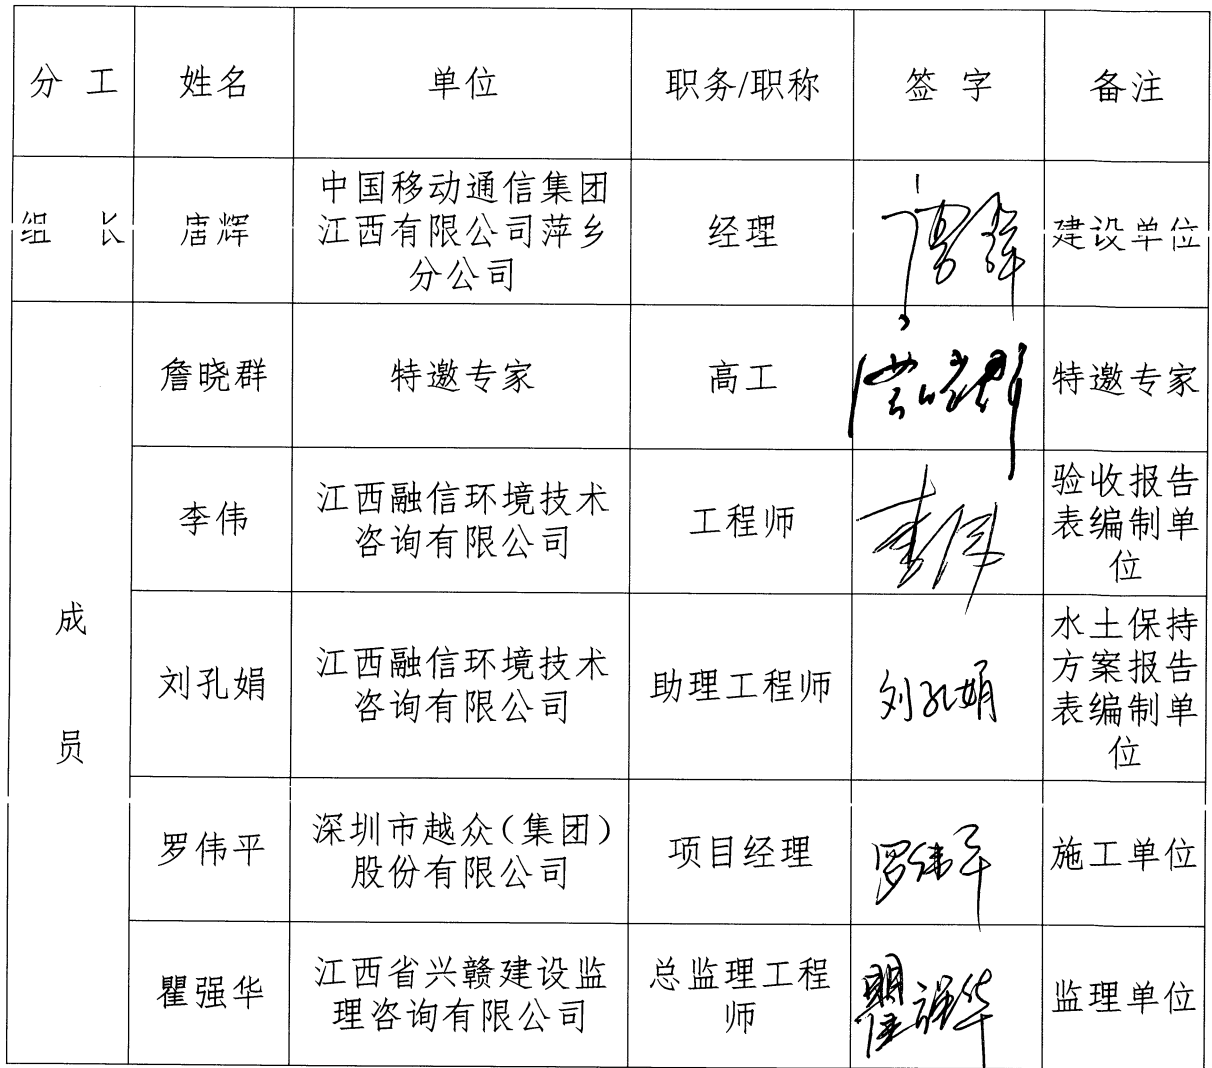 分 工 姓名 单位 职务/职称 签 字 备注
组 长 唐辉 中国移动通信集团
江西有限公司萍乡
分公司 经理 唐辉 建设单位
成
员
詹晓群 特邀专家 高工 詹晓群 特邀专家
李伟 江西融信环境技术
咨询有限公司 工程师 李伟 验收报告
表编制单
位
刘孔娟 江西融信环境技术
咨询有限公司 助理工程师 刘孔娟 水土保持
方案报告
表编制单
位
罗伟平 深圳市越众（集团）
股份有限公司 项目经理 罗伟平 施工单位
瞿强华 江西省兴赣建设监
理咨询有限公司 总监理工程
师 瞿强华 监理单位